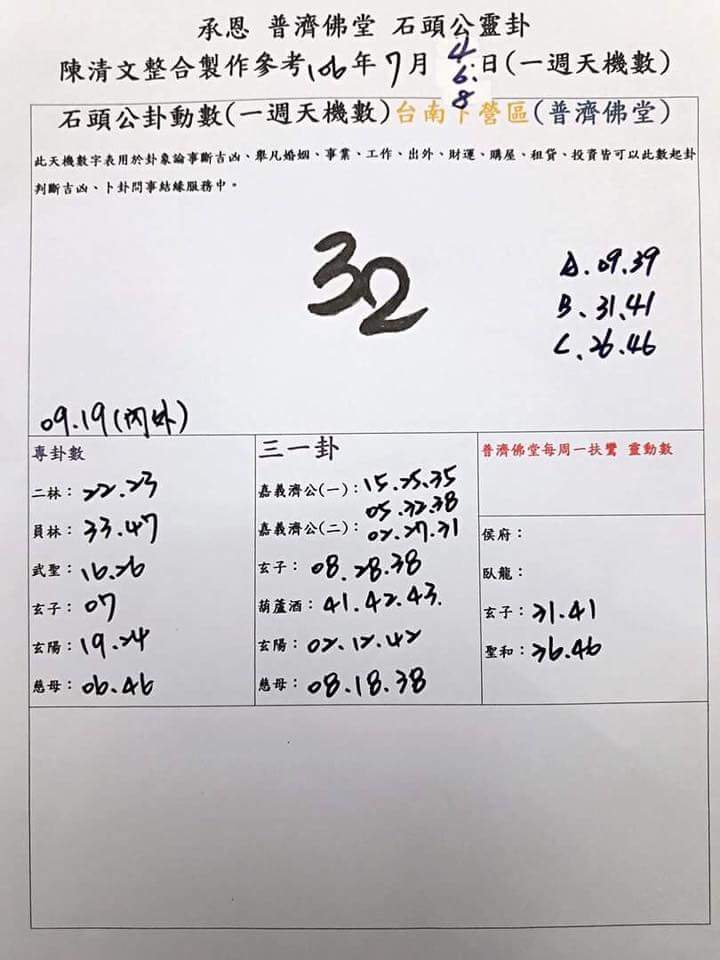 承恩 普濟佛堂 石頭公靈卦
陳清文整合製作參考106年7月4.6.8日(一週天機數)
石頭公卦動數(一週天機數)台南下營區(普濟佛堂)
此天機數字表用於卦象論事斷吉凶、舉凡婚姻、事業、工作、出外、財運、購屋、租貸、投資皆可以此數起卦
判斷吉凶、卜卦問事結緣服務中。
32
A.09.39
B、31.41
C、26.46
09.19(內外)
專卦數
二林：22.23
員林：33.47
武聖：16.26
玄子：07
玄陽：19.24
慈母：06.46
三一卦
嘉義濟公(一)：15.25.35
05.32.38
嘉義濟公(二)：02.27.31
玄子：08.28.38
葫蘆酒：41.42.43.
玄陽：02.12.42
慈母：08.18.38
普濟佛堂每周一扶鸞 靈動數
侯府：
臥龍：
玄子：31.41
聖和：36.46